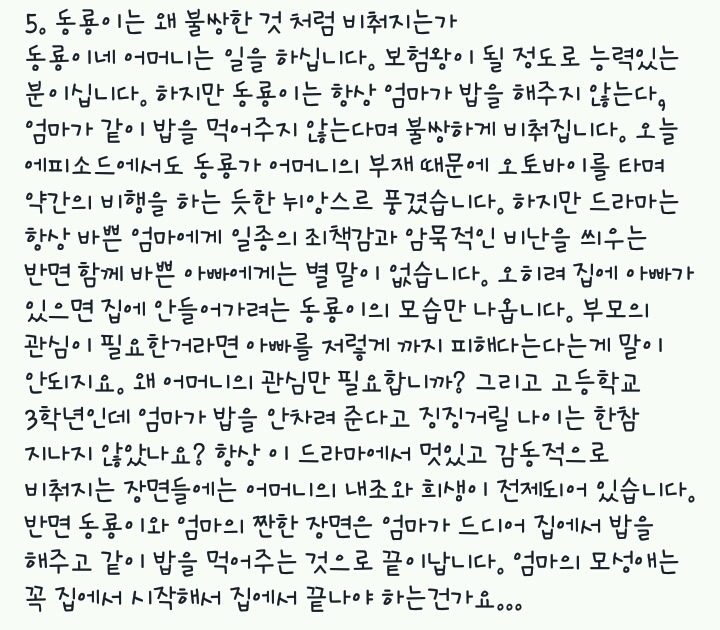 5. 동룡이는 왜 불쌍한 것 처럼 비춰지는가
동룡이네 어머니는 일을 하십니다. 보험왕이 될 정도로 능력있는
분이십니다. 하지만 동룡이는 항상 엄마가 밥을 해주지 않는다,
엄마가 같이 밥을 먹어주지 않는다며 불쌍하게 비춰집니다. 오늘
에피소드에서도 동룡가 어머니의 부재 때문에 오토바이를 타며
약간의 비행을 하는 듯한 뉘앙스르 풍겼습니다. 하지만 드라마는
항상 바쁜 엄마에게 일종의 죄책감과 암묵적인 비난을 씌우는
반면 함께 바쁜 아빠에게는 별 말이 없습니다. 오히려 집에 아빠가
있으면 집에 안들어가려는 동룡이의 모습만 나옵니다. 부모의
관심이 필요한거라면 아빠를 저렇게 까지 피해다는다는게 말이
안되지요. 왜 어머니의 관심만 필요합니까? 그리고 고등학교
3학년인데 엄마가 밥을 안차려 준다고 징징거릴 나이는 한참
지나지 않았나요? 항상 이 드라마에서 멋있고 감동적으로
비춰지는 장면들에는 어머니의 내조와 희생이 전제되어 있습니다.
반면 동룡이와 엄마의 짠한 장면은 엄마가 드디어 집에서 밥을
해주고 같이 밥을 먹어주는 것으로 끝이납니다. 엄마의 모성애는
꼭 집에서 시작해서 집에서 끝나야 하는건가요...